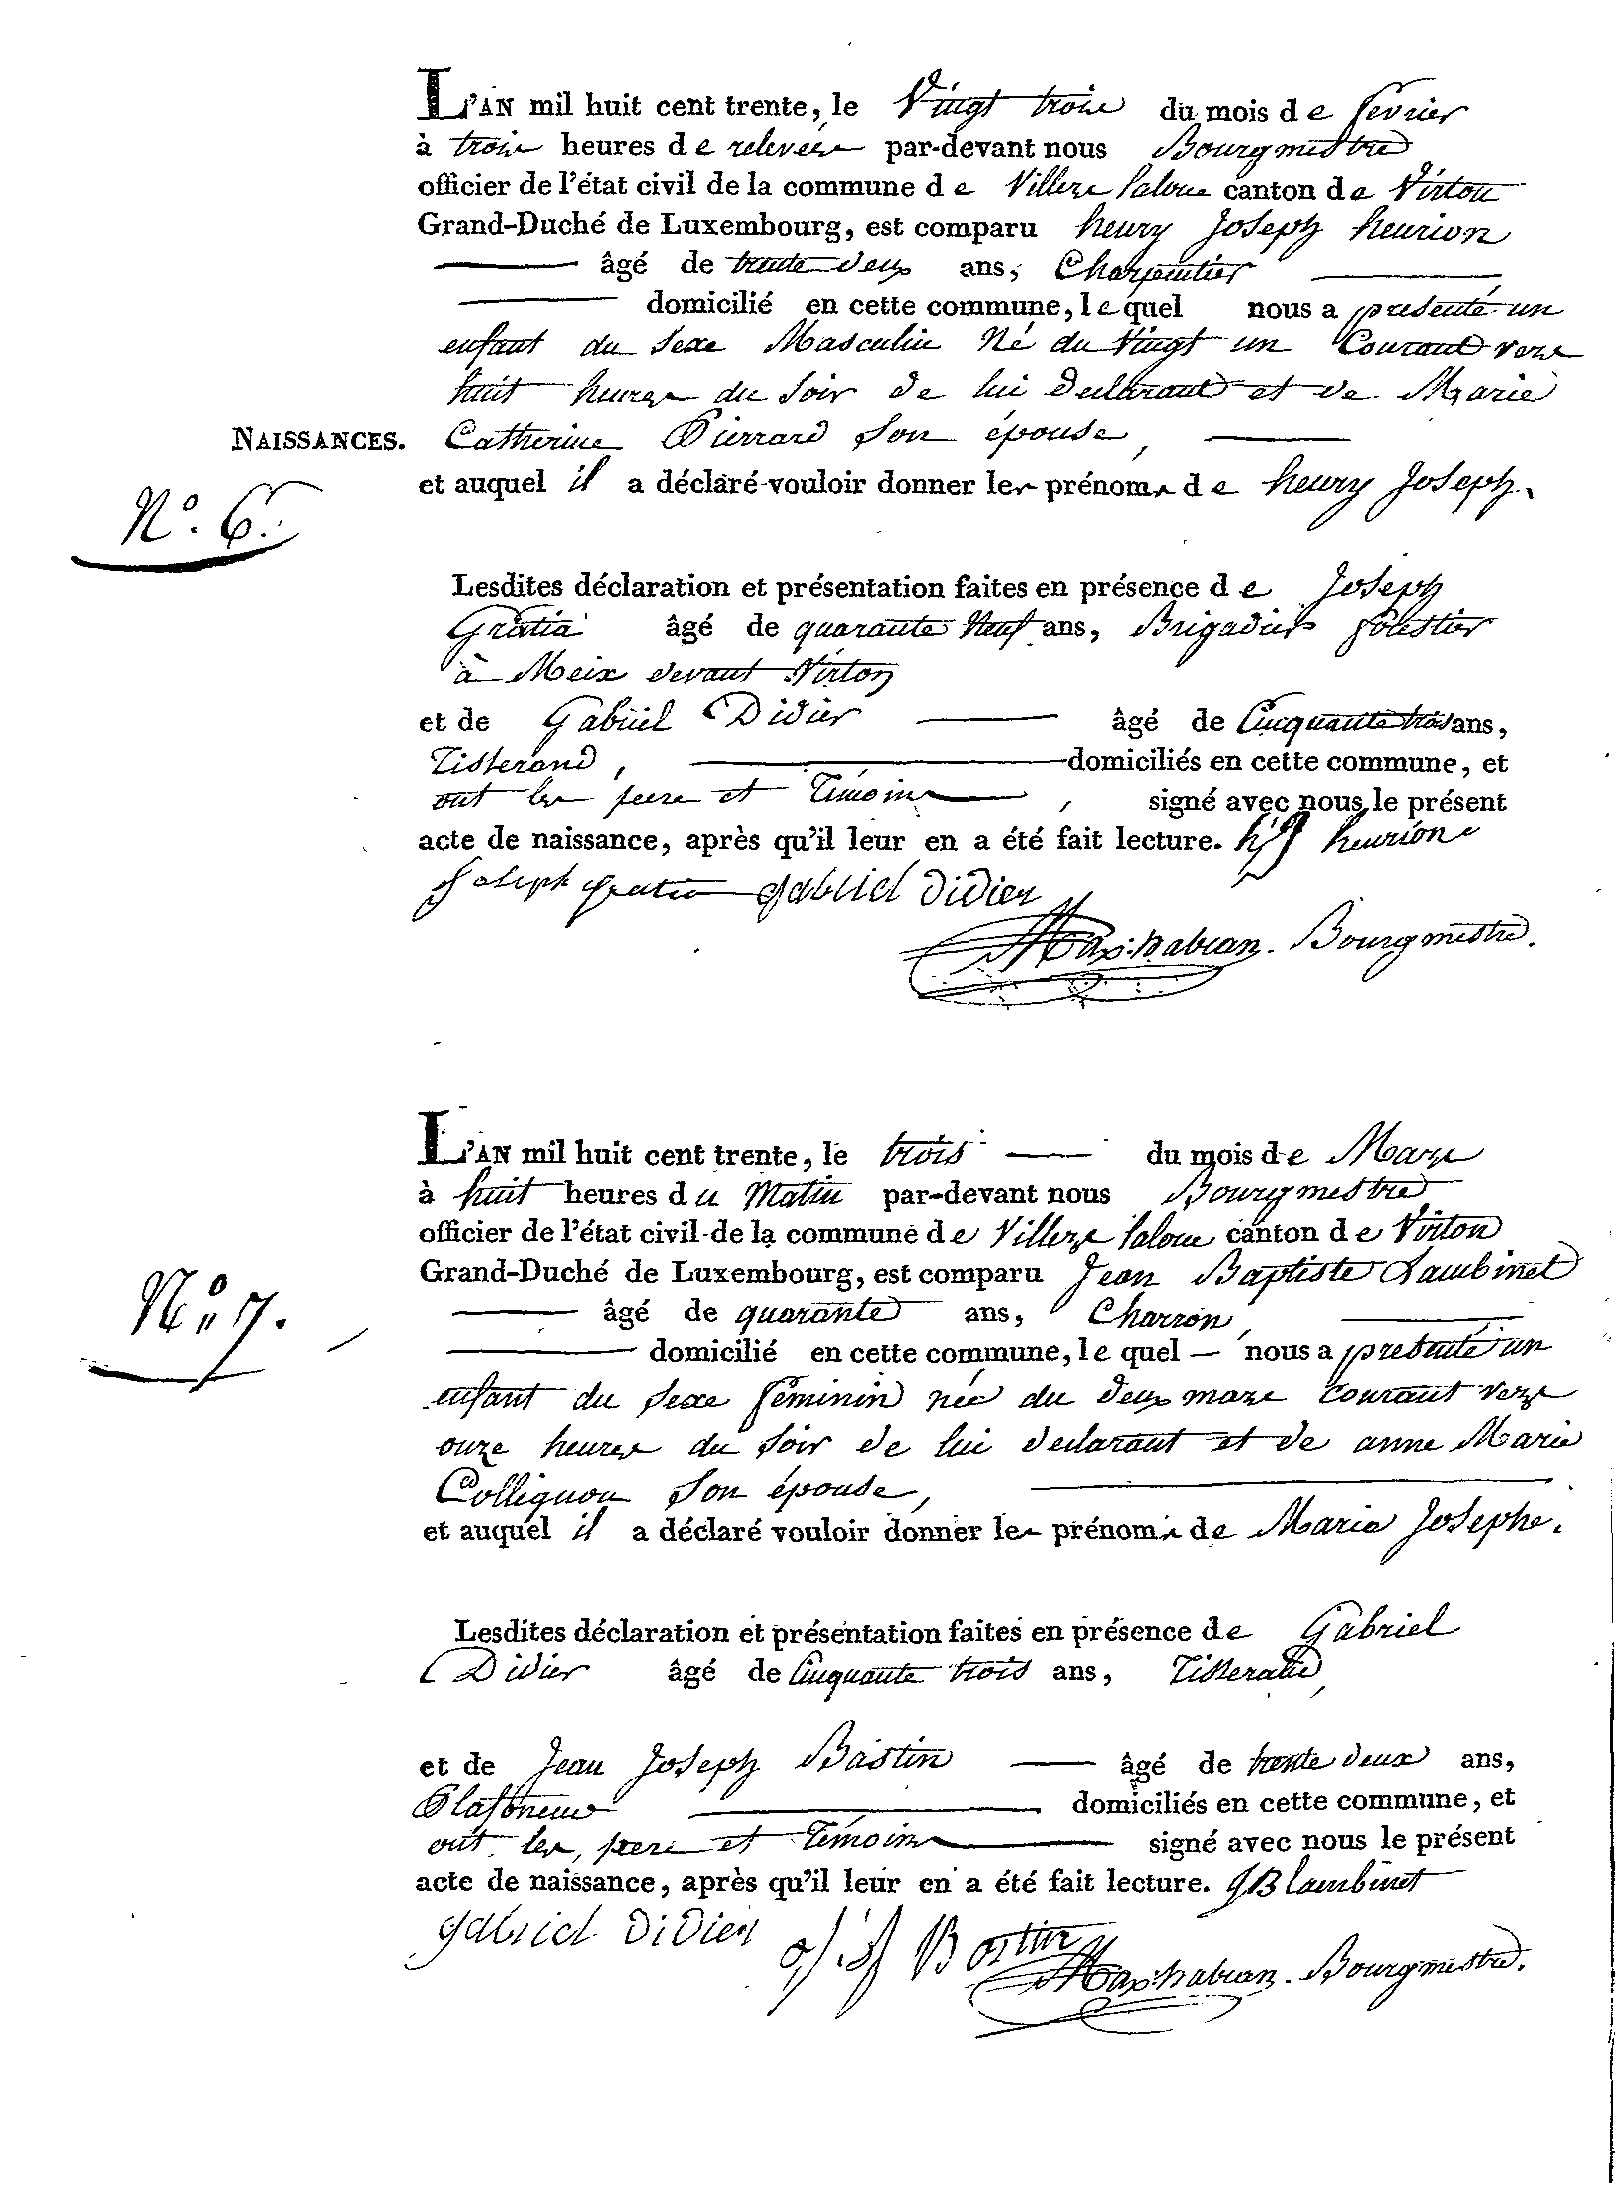 L'AN mil huit cent trente, le Vingt trois du mois de fevrier
à trois heures de relevée par-devant nous Bourgmestre
officier de l'état civil de la commune de Villers laloue canton de Virton
Grand-Duché de Luxembourg, est comparu henry Joseph henrion
âgé de trente deux ans, Charpentier
domicilié en cette commune, lequel nous a presenté un
enfant du sexe Masculin Né du Vingt un Courant vers
huit heures du soir de lui declarant et de Marie
NAISSANCES. Catherine Pierrard son épouse,
et auquel il a déclaré vouloir donner les prénoms de henry Joseph.
N° 6.
Lesdites déclaration et présentation faites en présence de Joseph
Gratia âgé de quarante Neuf ans, Brigadier forestier
à Meix devant Virton
et de Gabriel Didier âgé de Cinquante trois ans,
Tisserand, domiciliés en cette commune, et
ont les pere et Témoins, signé avec nous le présent
acte de naissance, après qu'il leur en a été fait lecture. hJ henrion
Joseph gratia gabriel didier
Bourgmestre.
L'AN mil huit cent trente, le trois du mois de Mars
à huit heures du Matin par-devant nous Bourgmestre
officier de l'état civil de la commune de Villers laloue canton de Virton
Grand-Duché de Luxembourg, est comparu Jean Baptiste Lambinet
N° 7. âgé de quarante ans, Charron,
domicilié en cette commune, lequel nous a presenté un
enfant du sexe féminin née du deux mars courant vers
onze heures du soir de lui declarant et de anne Marie
Collignon son épouse,
et auquel il a déclaré vouloir donner les prénoms de Marie Josephe.
Lesdites déclaration et présentation faites en présence de Gabriel
Didier âgé de Cinquante trois ans, Tisserand,
et de Jean Joseph Bastin âgé de trente deux ans,
Plafoneur domiciliés en cette commune, et
ont les, pere et Témoins signé avec nous le présent
acte de naissance, après qu'il leur en a été fait lecture. JB lambinet
gabriel didier J.J Bastin
Bourgmestre.